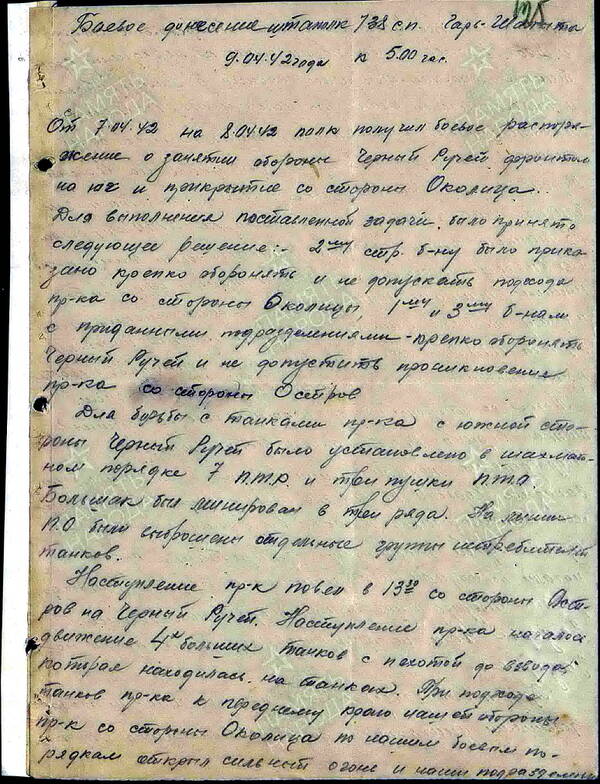 125
Боевое донесение штаполк 738 с.п. Гарь-
9.04.42 года к 5.00 час.
От 7.04.42 на 8.04.42 полк получил боевое распоря-
жение о занятии обороны Черный Ручей фронтом
на юг и прикрытие со стороны Околица.
Для выполнения поставленной задачи было принято
следующее решение:- 2ому стр. б-ну было прика-
зано крепко оборонять и не допускать подхода
пр-ка со стороны Околицы, 1ому и 3ому б-нам
с приданными подразделениями-крепко оборонять
Черный Ручей и не допустить проникновения
пр-ка со стороны Остров
Для борьбы с танками пр-ка с южной сто-
роны Черный Ручей было установлено в шахмат-
ном порядке 7 п.т.р. и три пушки п.т.о.
Большак был минирован в три ряда. На линию
П.О были выброшены отдельные группы истребителей
танков.
Наступление пр-к повел в 13 30 со стороны Остр-
ров на Черный Ручей. Наступление пр-ка началось
движение 4х больших танков с пехотой до взвода,
которая находилась на танках. При подходе
танков пр-ка к переднему краю нашей обороны
пр-к со стороны Околица по нашим боевым по-
рядкам открыл сильный огонь и наши подразделения